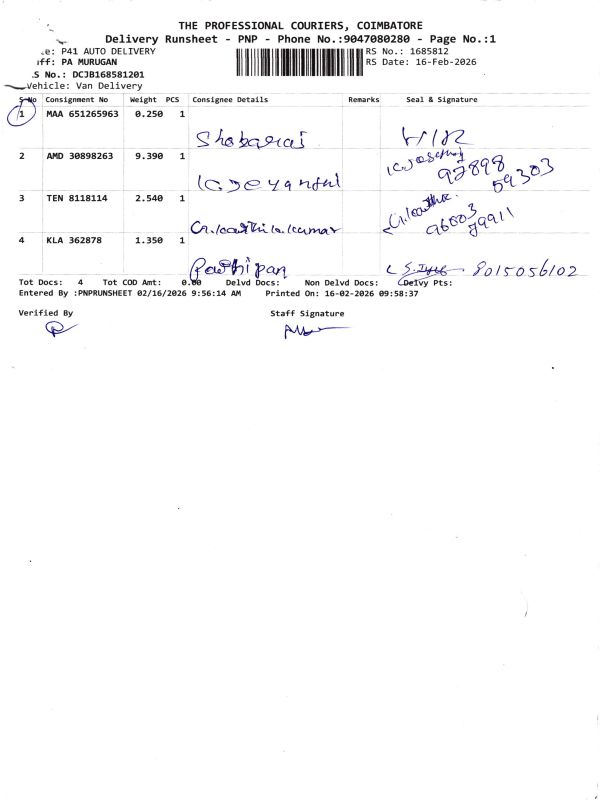 THE PROFESSIONAL COURIERS, COIMBATORE
Delivery Runsheet - PNP - Phone No.:9047080280 - Page No.:1
e: P41 AUTO DELIVERY
RS No.: 1685812
iff: PA MURUGAN
RS Date: 16-Feb-2026
S No.: DCJB168581201
Vehicle: Van Delivery
S No Consignment No Weight PCS Consignee Details Remarks Seal & Signature
1 MAA 651265963 0.250 1
Shobaraj
2 AMD 30898263 9.390 1
K. Jeyanthi
97898
59303
3 TEN 8118114 2.540 1
G. Karthik kumar
G. Karthik
96003
79911
4 KLA 362878 1.350 1
Parthipan
9015056102
Tot Docs: 4 Tot COD Amt: 0.00 Delvd Docs: Non Delvd Docs: Delvy Pts:
Entered By :PNPRUNSHEET 02/16/2026 9:56:14 AM Printed On: 16-02-2026 09:58:37
Verified By Staff Signature